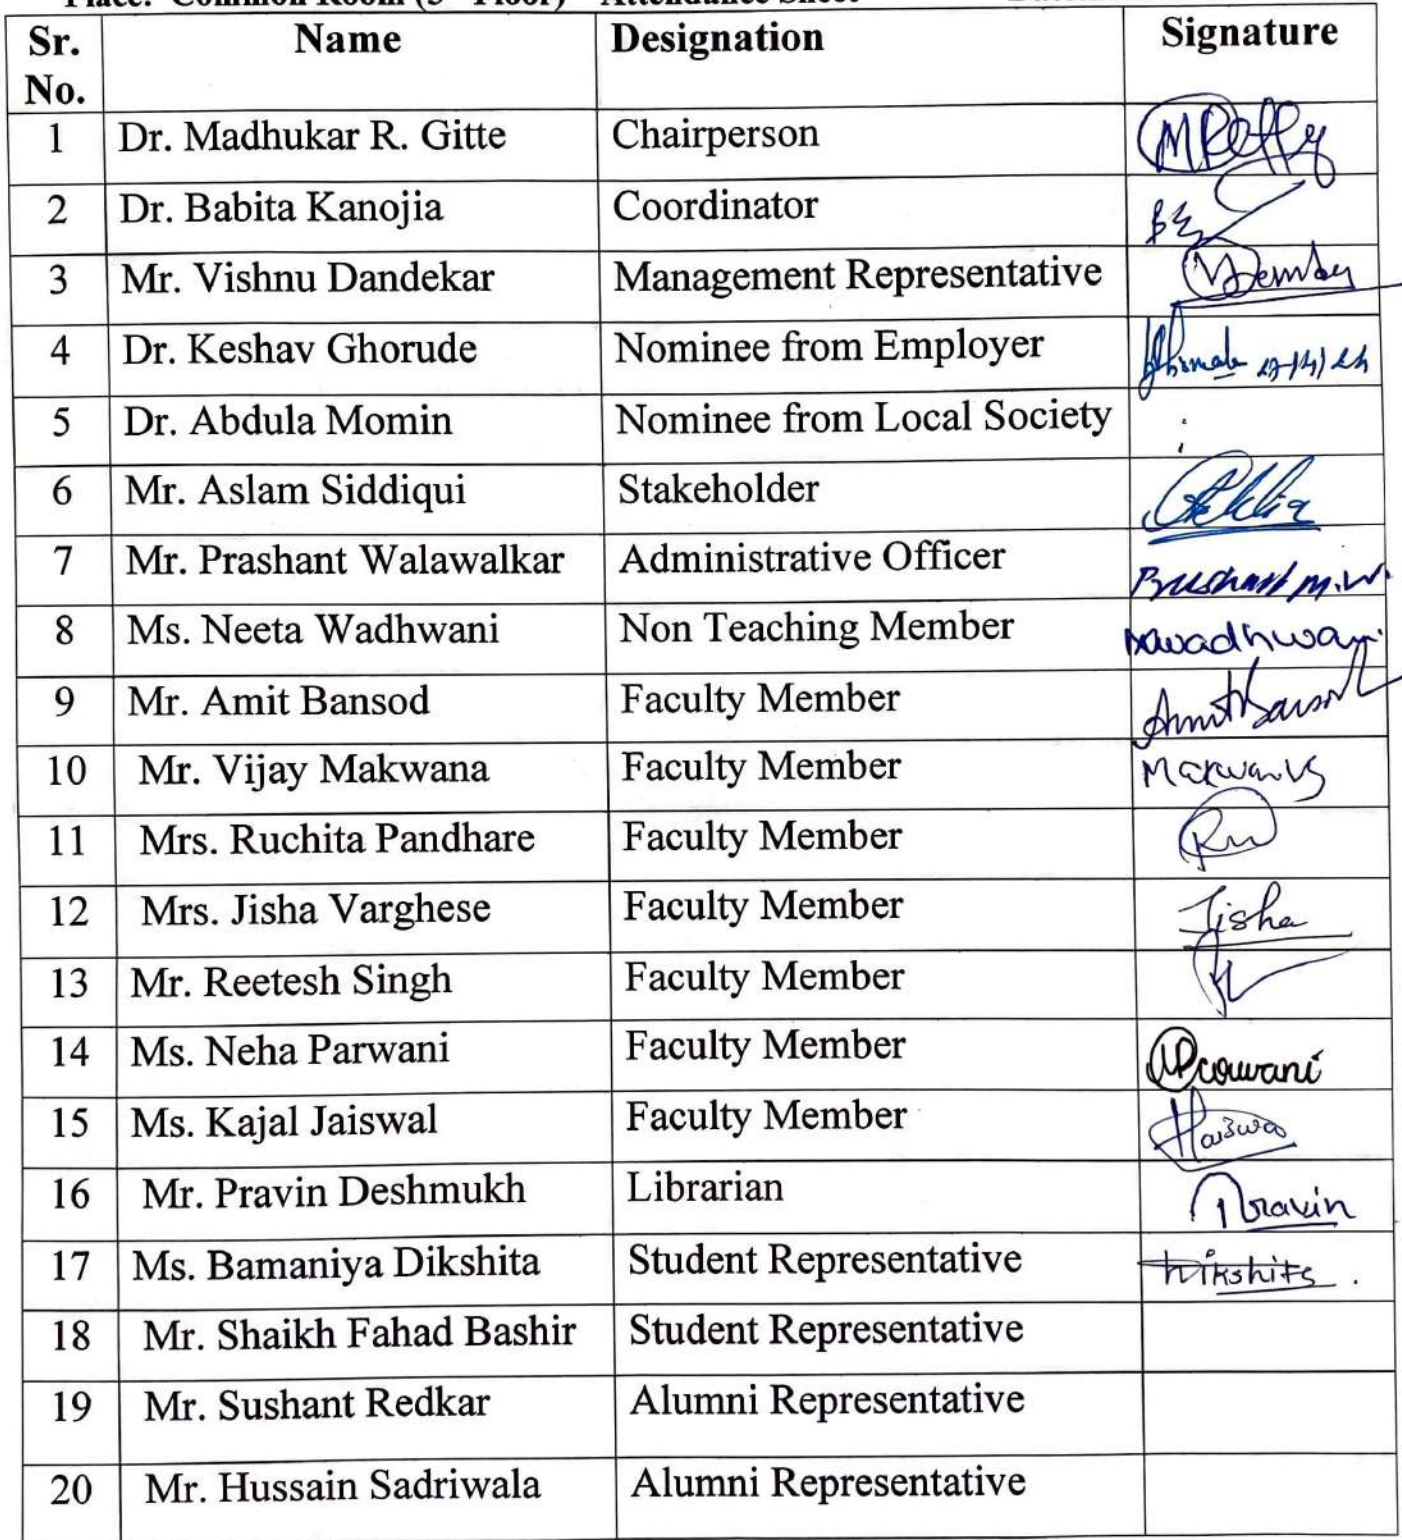 Sr. No. Name Designation Signature
1 Dr. Madhukar R. Gitte Chairperson
2 Dr. Babita Kanojia Coordinator
3 Mr. Vishnu Dandekar Management Representative
4 Dr. Keshav Ghorude Nominee from Employer
5 Dr. Abdula Momin Nominee from Local Society
6 Mr. Aslam Siddiqui Stakeholder
7 Mr. Prashant Walawalkar Administrative Officer
8 Ms. Neeta Wadhwani Non Teaching Member
9 Mr. Amit Bansod Faculty Member
10 Mr. Vijay Makwana Faculty Member
11 Mrs. Ruchita Pandhare Faculty Member
12 Mrs. Jisha Varghese Faculty Member Jisha
13 Mr. Reetesh Singh Faculty Member
14 Ms. Neha Parwani Faculty Member
15 Ms. Kajal Jaiswal Faculty Member
16 Mr. Pravin Deshmukh Librarian Pravin
17 Ms. Bamaniya Dikshita Student Representative
18 Mr. Shaikh Fahad Bashir Student Representative
19 Mr. Sushant Redkar Alumni Representative
20 Mr. Hussain Sadriwala Alumni Representative